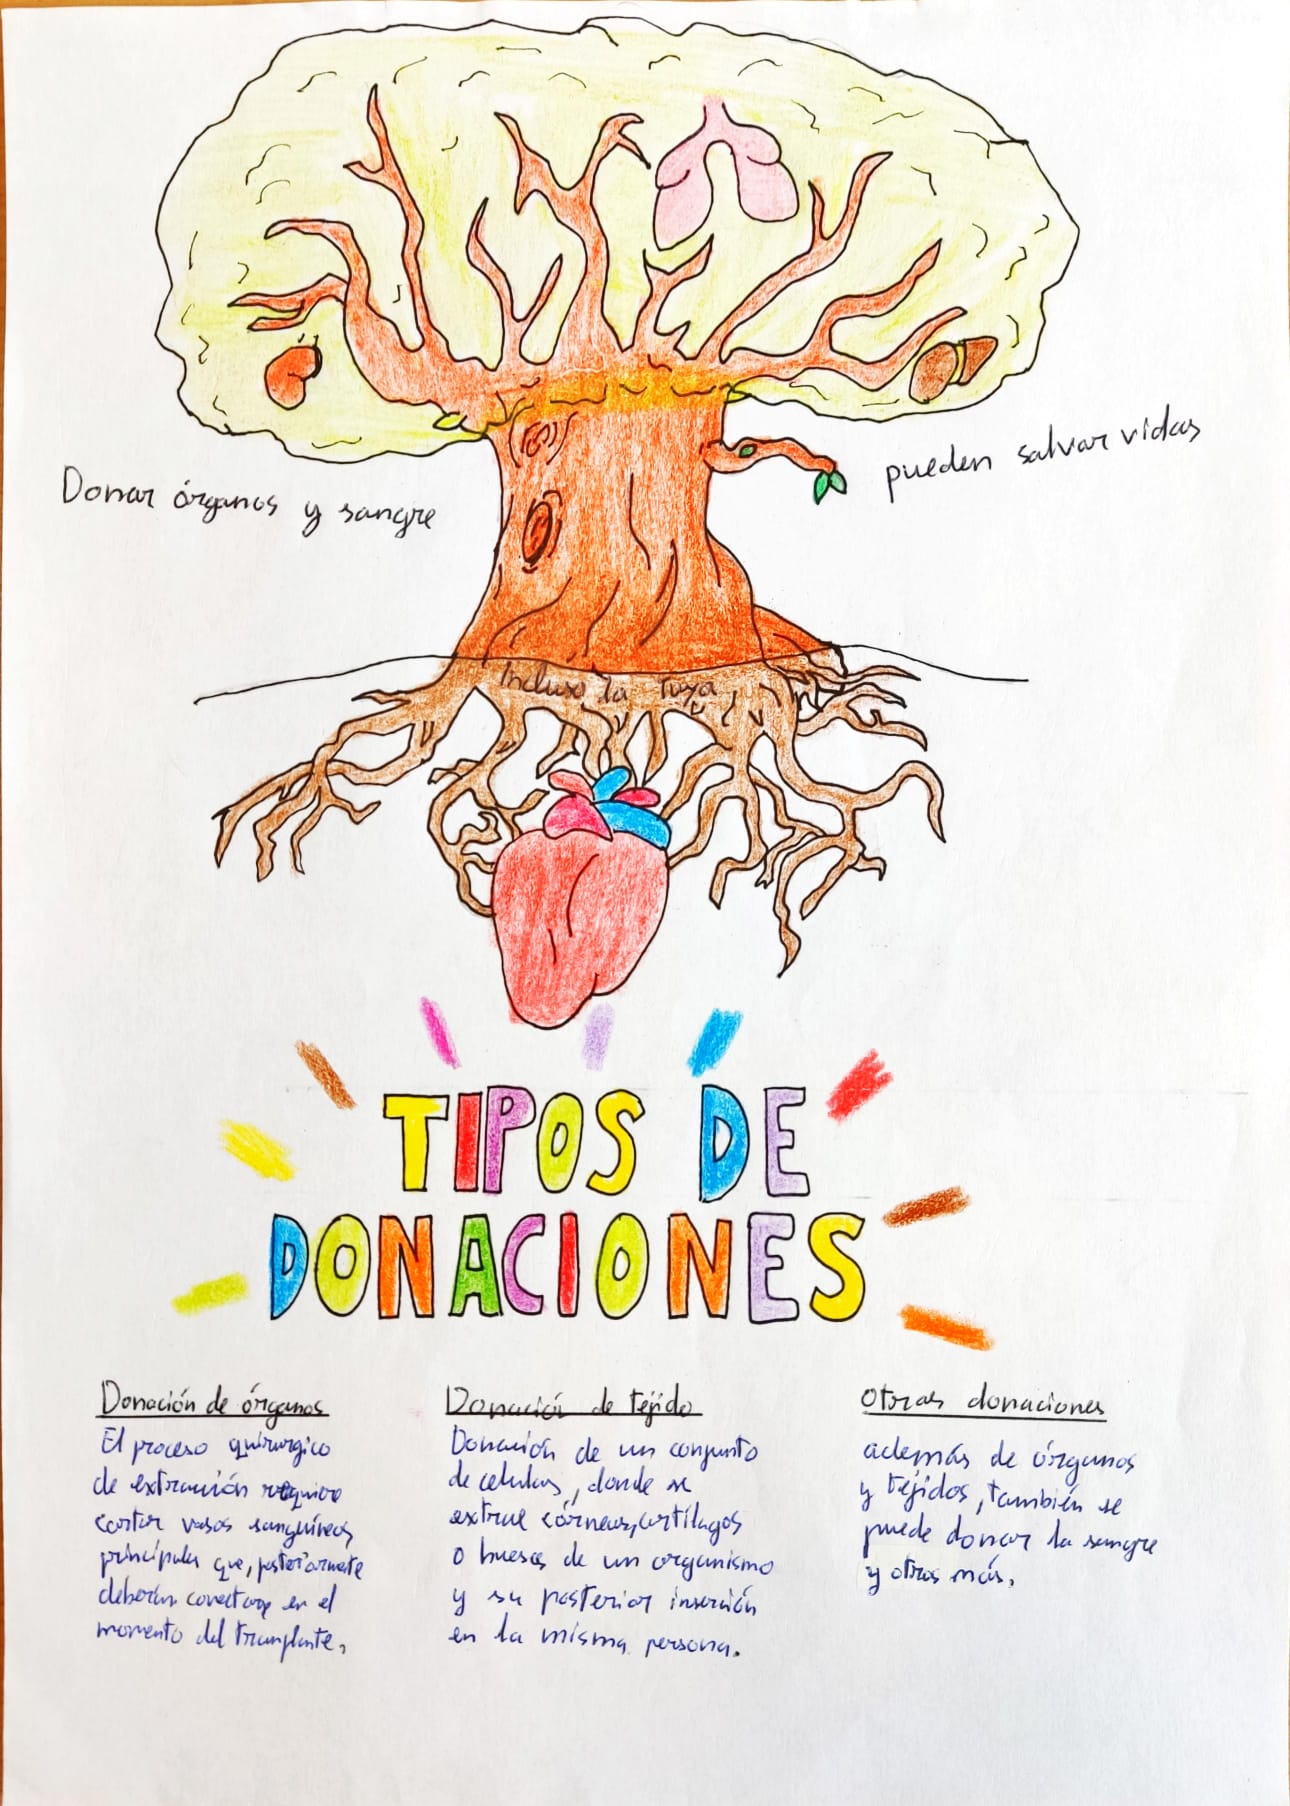 Donar órganos y sangre
pueden salvar vidas
Incluso la tuya
TIPOS DE
DONACIONES
Donación de órganos
El proceso quirurgico
de extracción requiere
cortar vasos sanguíneos
principales que, posteriormente
deberán conectarse en el
momento del tranplante.
Donación de tejido
Donación de un conjunto
de celulas, donde se
extrae córneas, cartílagos
o huesos de un organismo
y su posterior inserción
en la misma persona.
Otras donaciones
además de órganos
y tejidos, también se
puede donar la sangre
y otros más.